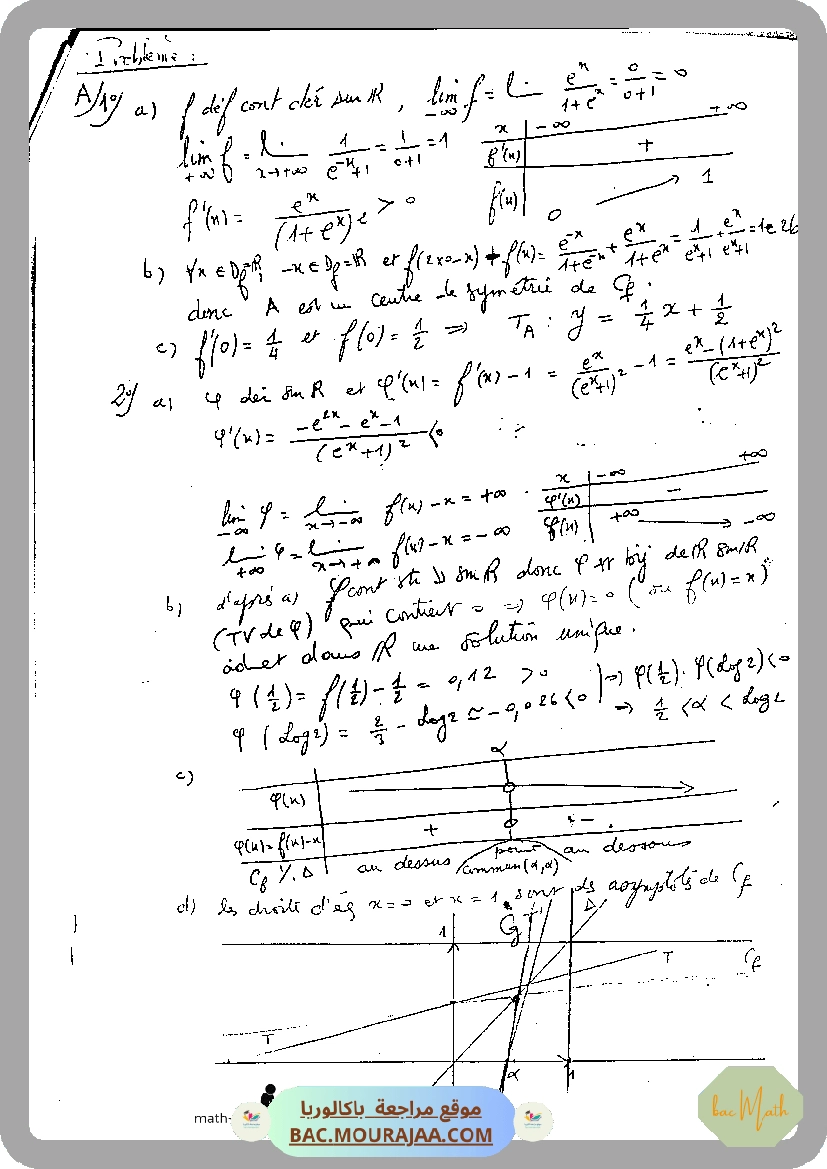 Problème :
A/ 1°/ a) f déf cont dér sur ℝ , lim_{-∞} f = lim e^x/(1+e^x) = 0/(0+1) = 0
lim_{+∞} f = lim_{x→+∞} 1/(e^{-x}+1) = 1/(0+1) = 1
x | -∞ +∞
f'(x) | +
f(x) | 0 → 1
f'(x) = e^x/(1+e^x)² > 0
b) ∀x ∈ D_f=ℝ, -x ∈ D_f=ℝ et f(2×0-x) + f(x) = e^{-x}/(1+e^{-x}) + e^x/(1+e^x) = 1/(e^x+1) + e^x/(e^x+1) = 1 = 2b
donc A est un centre de symétrie de Cf.
c) f'(0) = 1/4 et f(0) = 1/2 ⇒ T_A : y = 1/4 x + 1/2
2°/ a) φ dér sur ℝ et φ'(x) = f'(x) - 1 = e^x/(e^x+1)² - 1 = (e^x-(1+e^x)²)/(e^x+1)²
φ'(x) = (-e^{2x} - e^x - 1)/(e^x+1)² < 0
lim_{-∞} φ = lim_{x→-∞} f(x) - x = +∞
lim_{+∞} φ = lim_{x→+∞} f(x) - x = -∞
x | -∞ +∞
φ'(x) | -
φ(x) | +∞ → -∞
b) d'après a) φ cont st ↘ sur ℝ donc φ est bij de ℝ sur ℝ
(TV de φ) qui contient 0 ⇒ φ(x)=0 (ou f(x) = x)
admet dans ℝ une solution unique.
φ(1/2) = f(1/2) - 1/2 = 0,12 > 0 ⇒ φ(1/2). φ(Log2) < 0
φ(Log2) = 2/3 - Log2 ≃ -0,026 < 0 ⇒ 1/2 < α < Log2
c) α
φ(x)
φ(x) = f(x)-x | + 0 -
Cf %. Δ au dessus point commun (α,α) au dessous
d) les droite d'éq x=0 et x=1 sont des asymptotes de Cf
1 G T' Δ
T Cf
T
α 1
math-
موقع مراجعة باكالوريا
BAC.MOURAJAA.COM
bac Math